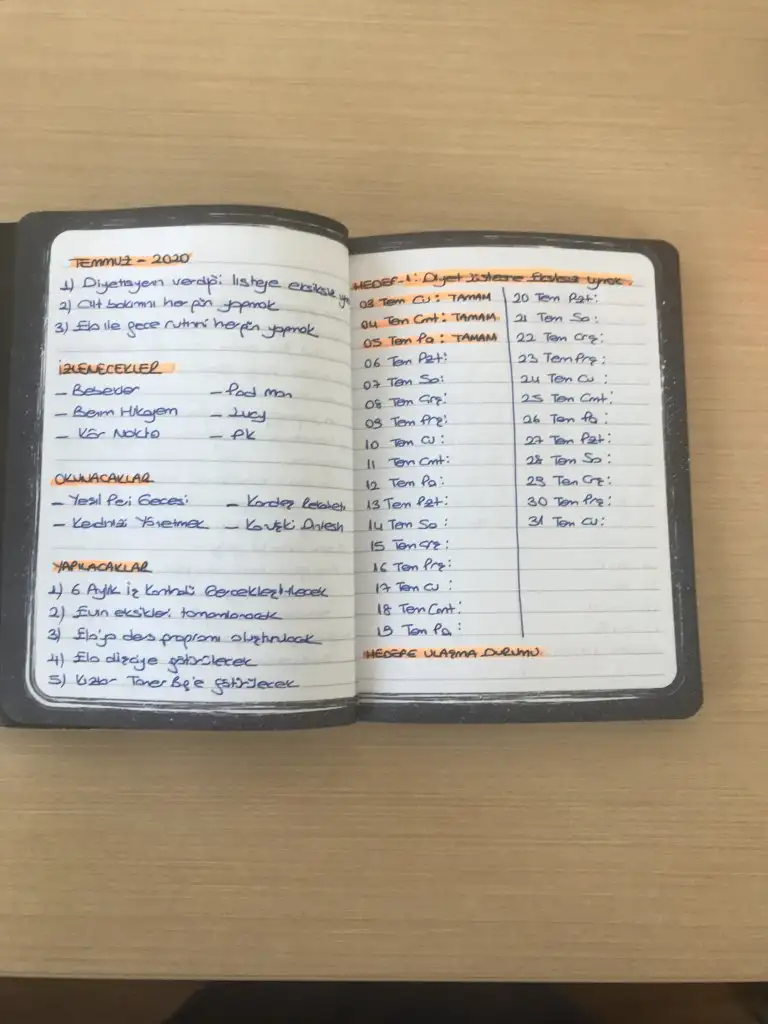 TEMMUZ - 2020
1) Diyetisyenin verdiği listeye eksiksiz
2) Cilt bakımını her gün yapmak
3) Ela ile gece rutinini hergün yapmak
İZLENECEKLER
- Bebekler - Pad Man
- Benim Hikayem - Lucy
- Kör Nokta - PK
OKUNACAKLAR
- Yeşil Peri Gecesi - Kardeş Rekabeti
- Kendini Yönetmek -
YAPILACAKLAR
1) 6 Aylık İz Kontrolü Gerçekleştirilecek
2) Evin eksikleri tamamlanacak
3) Ela'ya ders programı oluşturulacak
4) Ela dişçiye götürülecek
5) Kızlar Taner Bg'e götürülecek
HEDEF-1: Diyet listesine Eksiksiz uymak.
03 Tem Cu: TAMAM
04 Tem Cmt: TAMAM
05 Tem Pa: TAMAM
06 Tem Pzt:
07 Tem Sa:
08 Tem Çrş:
09 Tem Prş:
10 Tem Cu:
11 Tem Cmt:
12 Tem Pa:
13 Tem Pzt:
14 Tem Sa:
15 Tem Çrş:
16 Tem Prş:
17 Tem Cu:
18 Tem Cmt:
19 Tem Pa:
20 Tem Pzt:
21 Tem Sa:
22 Tem Çrş:
23 Tem Prş:
24 Tem Cu:
25 Tem Cmt:
26 Tem Pa:
27 Tem Pzt:
28 Tem Sa:
29 Tem Çrş:
30 Tem Prş:
31 Tem Cu:
HEDEFE ULAŞMA DURUMU: